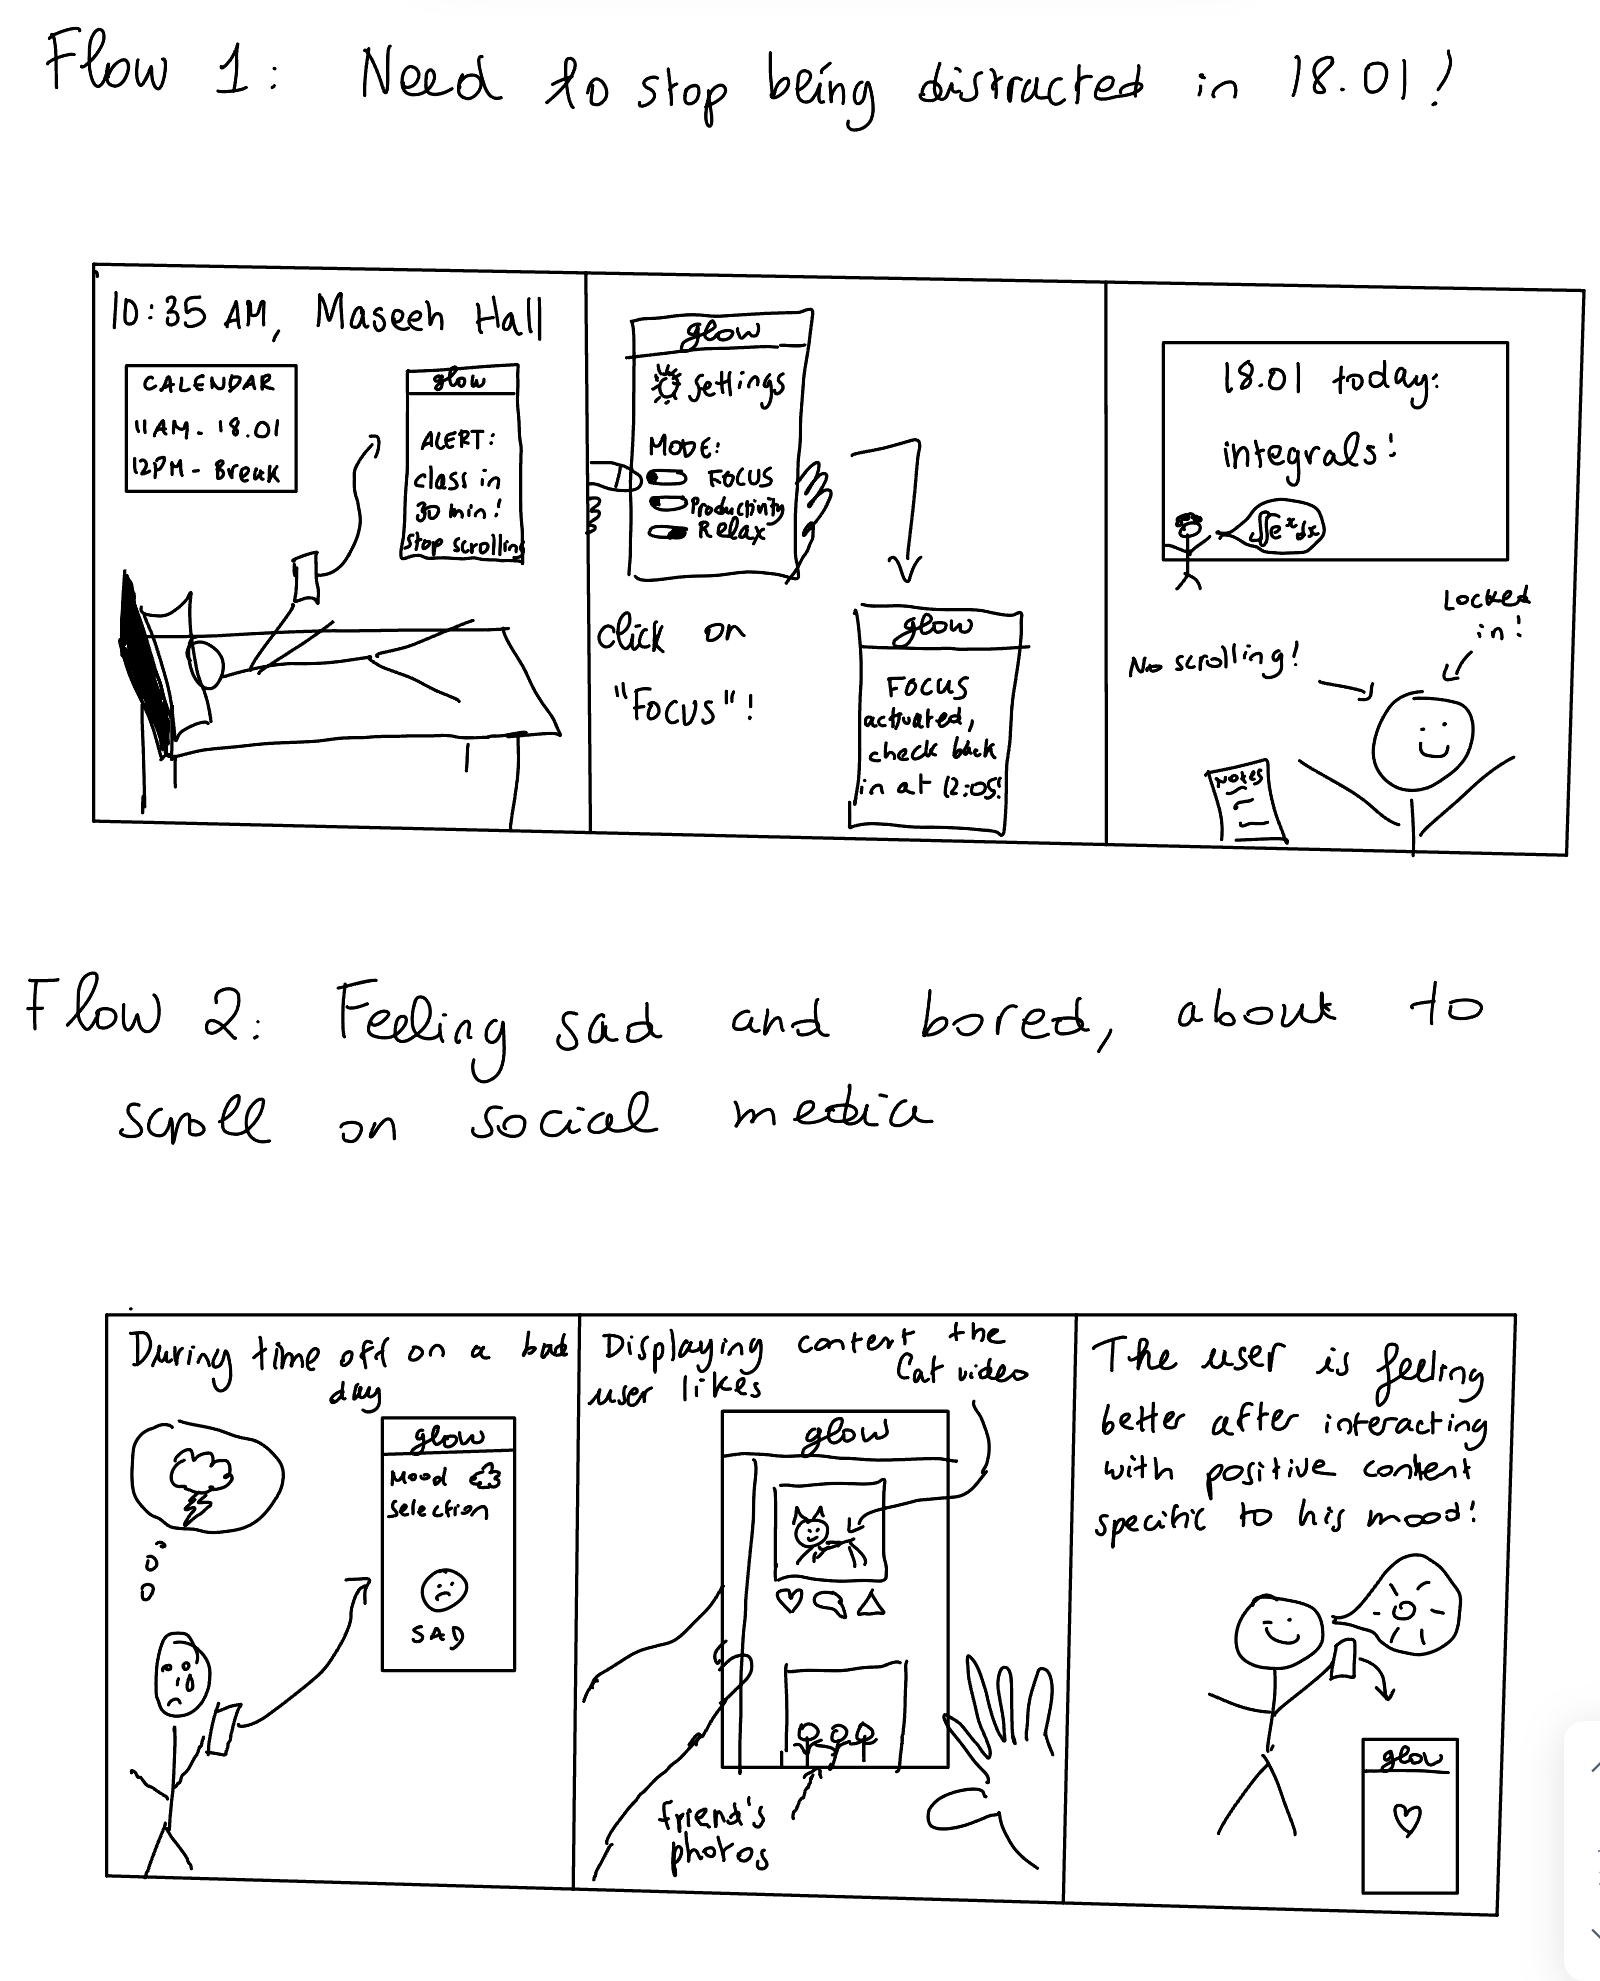 Flow 1: Need to stop being distracted in 18.01!
10:35 AM, Maseeh Hall
CALENDAR
11AM - 18.01
12PM - Break
glow
ALERT:
class in
30 min!
stop scrolling
glow
settings
MODE:
FOCUS
Productivity
Relax
click on
"FOCUS"!
glow
FOCUS
activated,
check back
in at 12:05!
18.01 today:
integrals!
∬eˣdx
Locked
in!
No scrolling!
Notes
Flow 2: Feeling sad and bored, about to
scroll on social media
During time off on a bad
day
glow
Mood
selection
SAD
Displaying content the
user likes
Cat video
glow
friend's
photos
The user is feeling
better after interacting
with positive content
specific to his mood!
glow